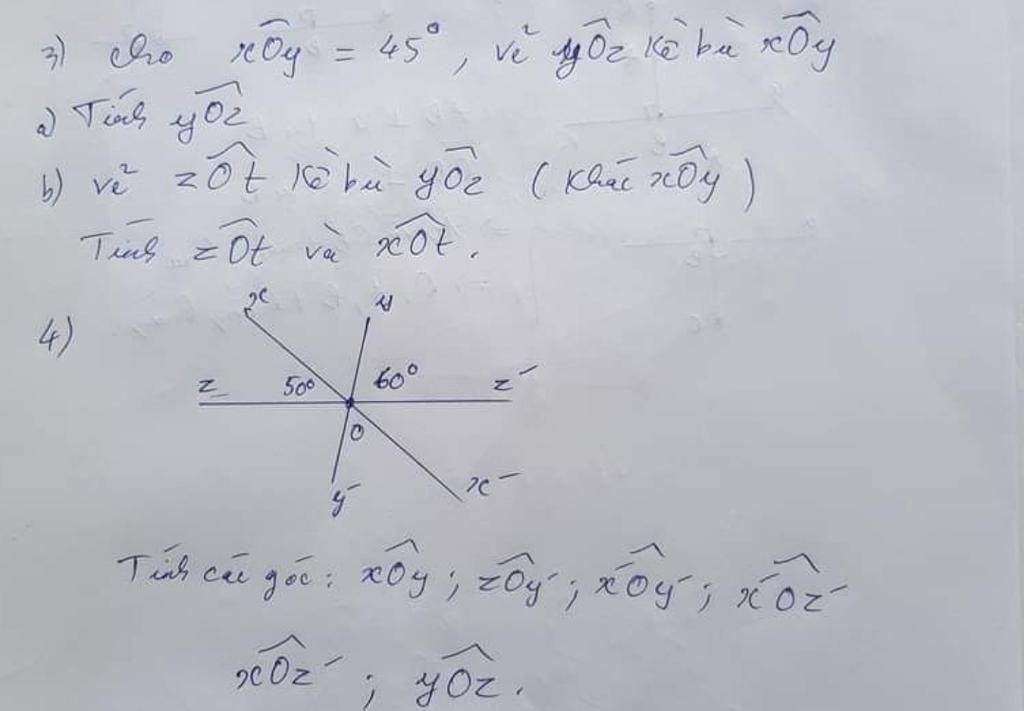 3) Cho xOy = 45°, vẽ yOz kề bù xOy
a) Tính yOz
b) vẽ zOt kề bù yOz (khác xOy)
Tính zOt và xOt.
4)
x y
z 50° 60° z'
O
y' x'
Tính các góc: xOy; zOy'; x'Oy'; x'Oz'
xOz'; yOz.